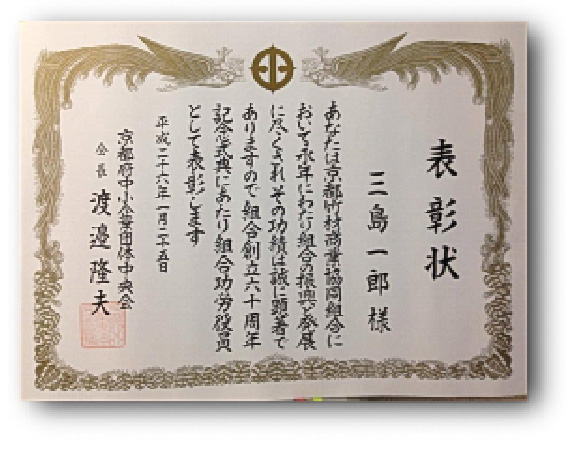 表彰状
三島一郎様
あなたは京都竹材商業協同組合に
おいて永年にわたり組合の振興と発展
に尽くされその功績は誠に顕著で
ありますので組合創立六十周年
記念式典にあたり組合功労役員
として表彰します
平成二十六年一月二十五日
京都府中小企業団体中央会
会長 渡邉隆夫